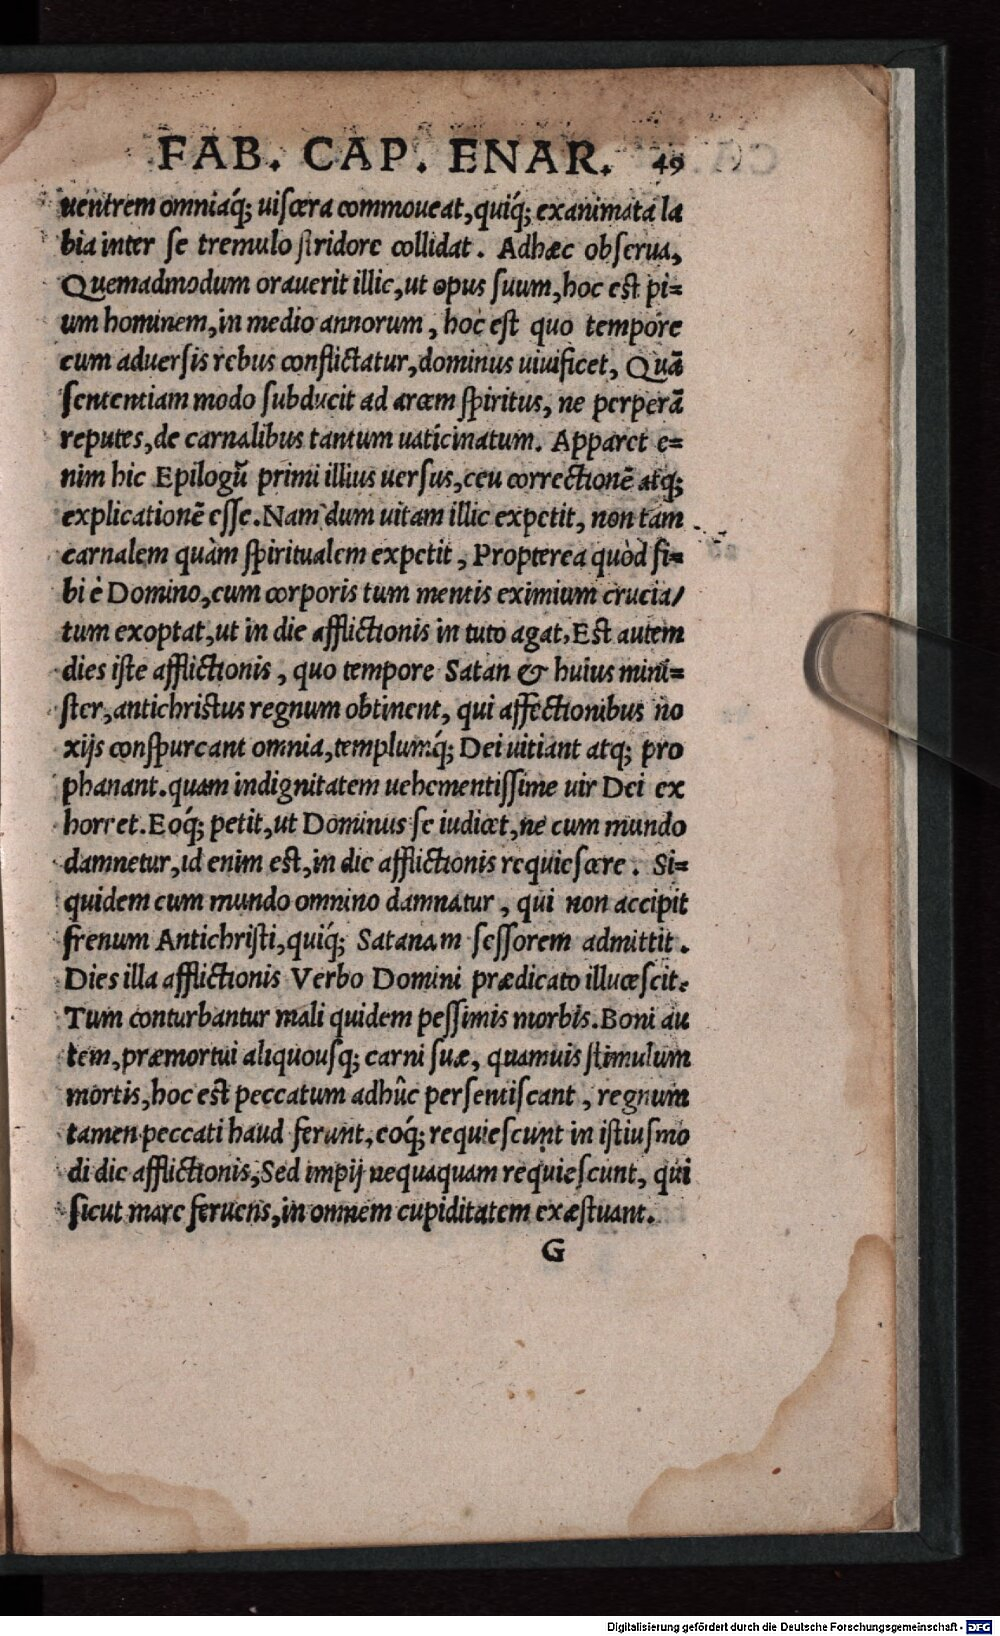 FAB. CAP. ENAR. 49
uentrem omniaq́; uiſcera commoueat, quiq́; exanimata la
bia inter ſe tremulo ſtridore collidat. Adhæc obſerua,
Quemadmodum orauerit illic, ut opus ſuum, hoc est pi=
um hominem, in medio annorum, hoc eſt quo tempore
cum aduerſis rebus conflictatur, dominus uiuificet, Quã
ſententiam modo ſubducit ad arcem ſpiritus, ne perperã
reputes, de carnalibus tantum uaticinatum. Apparet e=
nim hic Epilogũ primi illius uerſus, ceu correctionẽ atq;
explicationẽ eſſe. Nam dum uitam illic expetit, non tam
carnalem quàm ſpiritualem expetit, Propterea quòd ſi=
bi è Domino, cum corporis tum mentis eximium crucia/
tum exoptat, ut in die afflictionis in tuto agat, Est autem
dies iſte afflictionis, quo tempore Satan & huius mini=
ſter, antichristus regnum obtinent, qui affectionibus no
xijs conſpurcant omnia, templumq́; Dei uitiant atq; pro
phanant. quam indignitatem uehementiſſime uir Dei ex
horret. Eoq́; petit, ut Dominus ſe iudicet, ne cum mundo
damnetur, id enim est, in die afflictionis requieſcere. Si=
quidem cum mundo omnino damnatur, qui non accipit
frenum Antichriſti, quiq́; Satanam ſeſſorem admittit.
Dies illa afflictionis Verbo Domini prædicato illuceſcit.
Tum conturbantur mali quidem peſſimis morbis. Boni au
tem, præmortui aliquouſq; carni ſuæ, quamuis ſtimulum
mortis, hoc est peccatum adhûc perſentiſcant, regnum
tamen peccati haud ferunt, eoq́; requieſcunt in iſtiuſmo
di die afflictionis, Sed impij nequaquam requieſcunt, qui
ſicut mare feruens, in omnem cupiditatem exæſtuant.
G
Digitalisierung gefördert durch die Deutsche Forschungsgemeinschaft - DFG